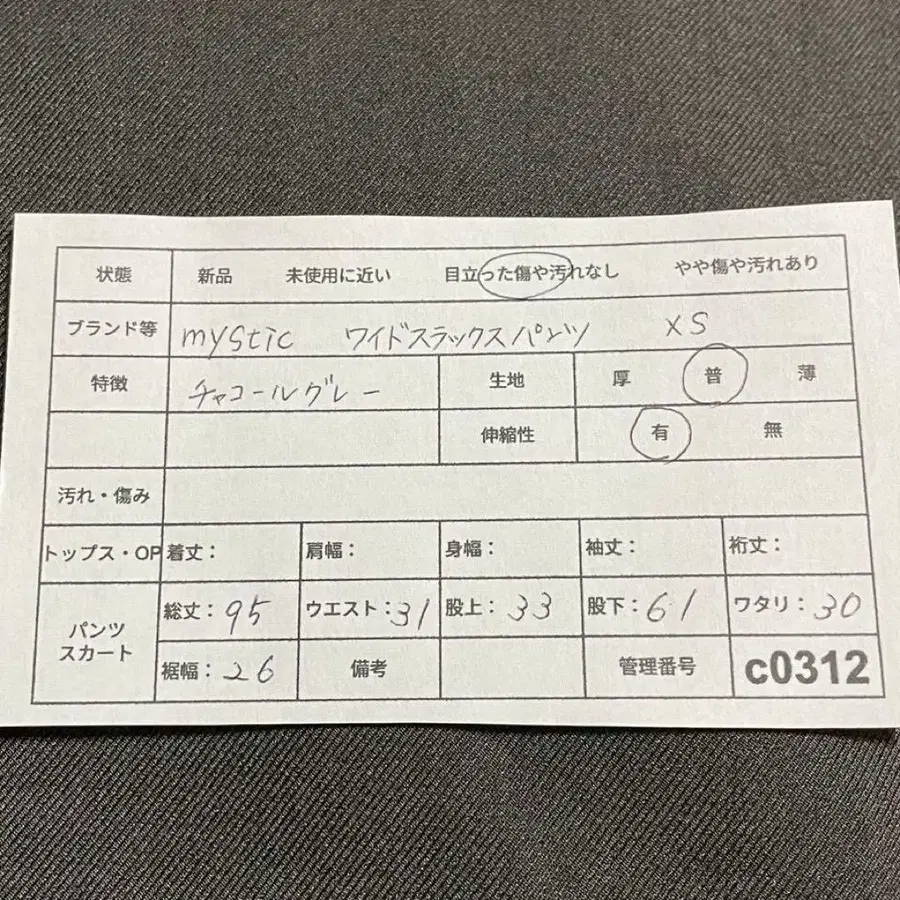 状態 新品 未使用に近い 目立った傷や汚れなし やや傷や汚れあり
ブランド等 mystic ワイドスラックスパンツ XS
特徴 チャコールグレー 生地 厚 普 薄
伸縮性 有 無
汚れ・傷み
トップス・OP 着丈: 肩幅: 身幅: 袖丈: 裄丈:
パンツ スカート 総丈:95 ウエスト:31 股上:33 股下:61 ワタリ:30
裾幅:26 備考 管理番号 c0312